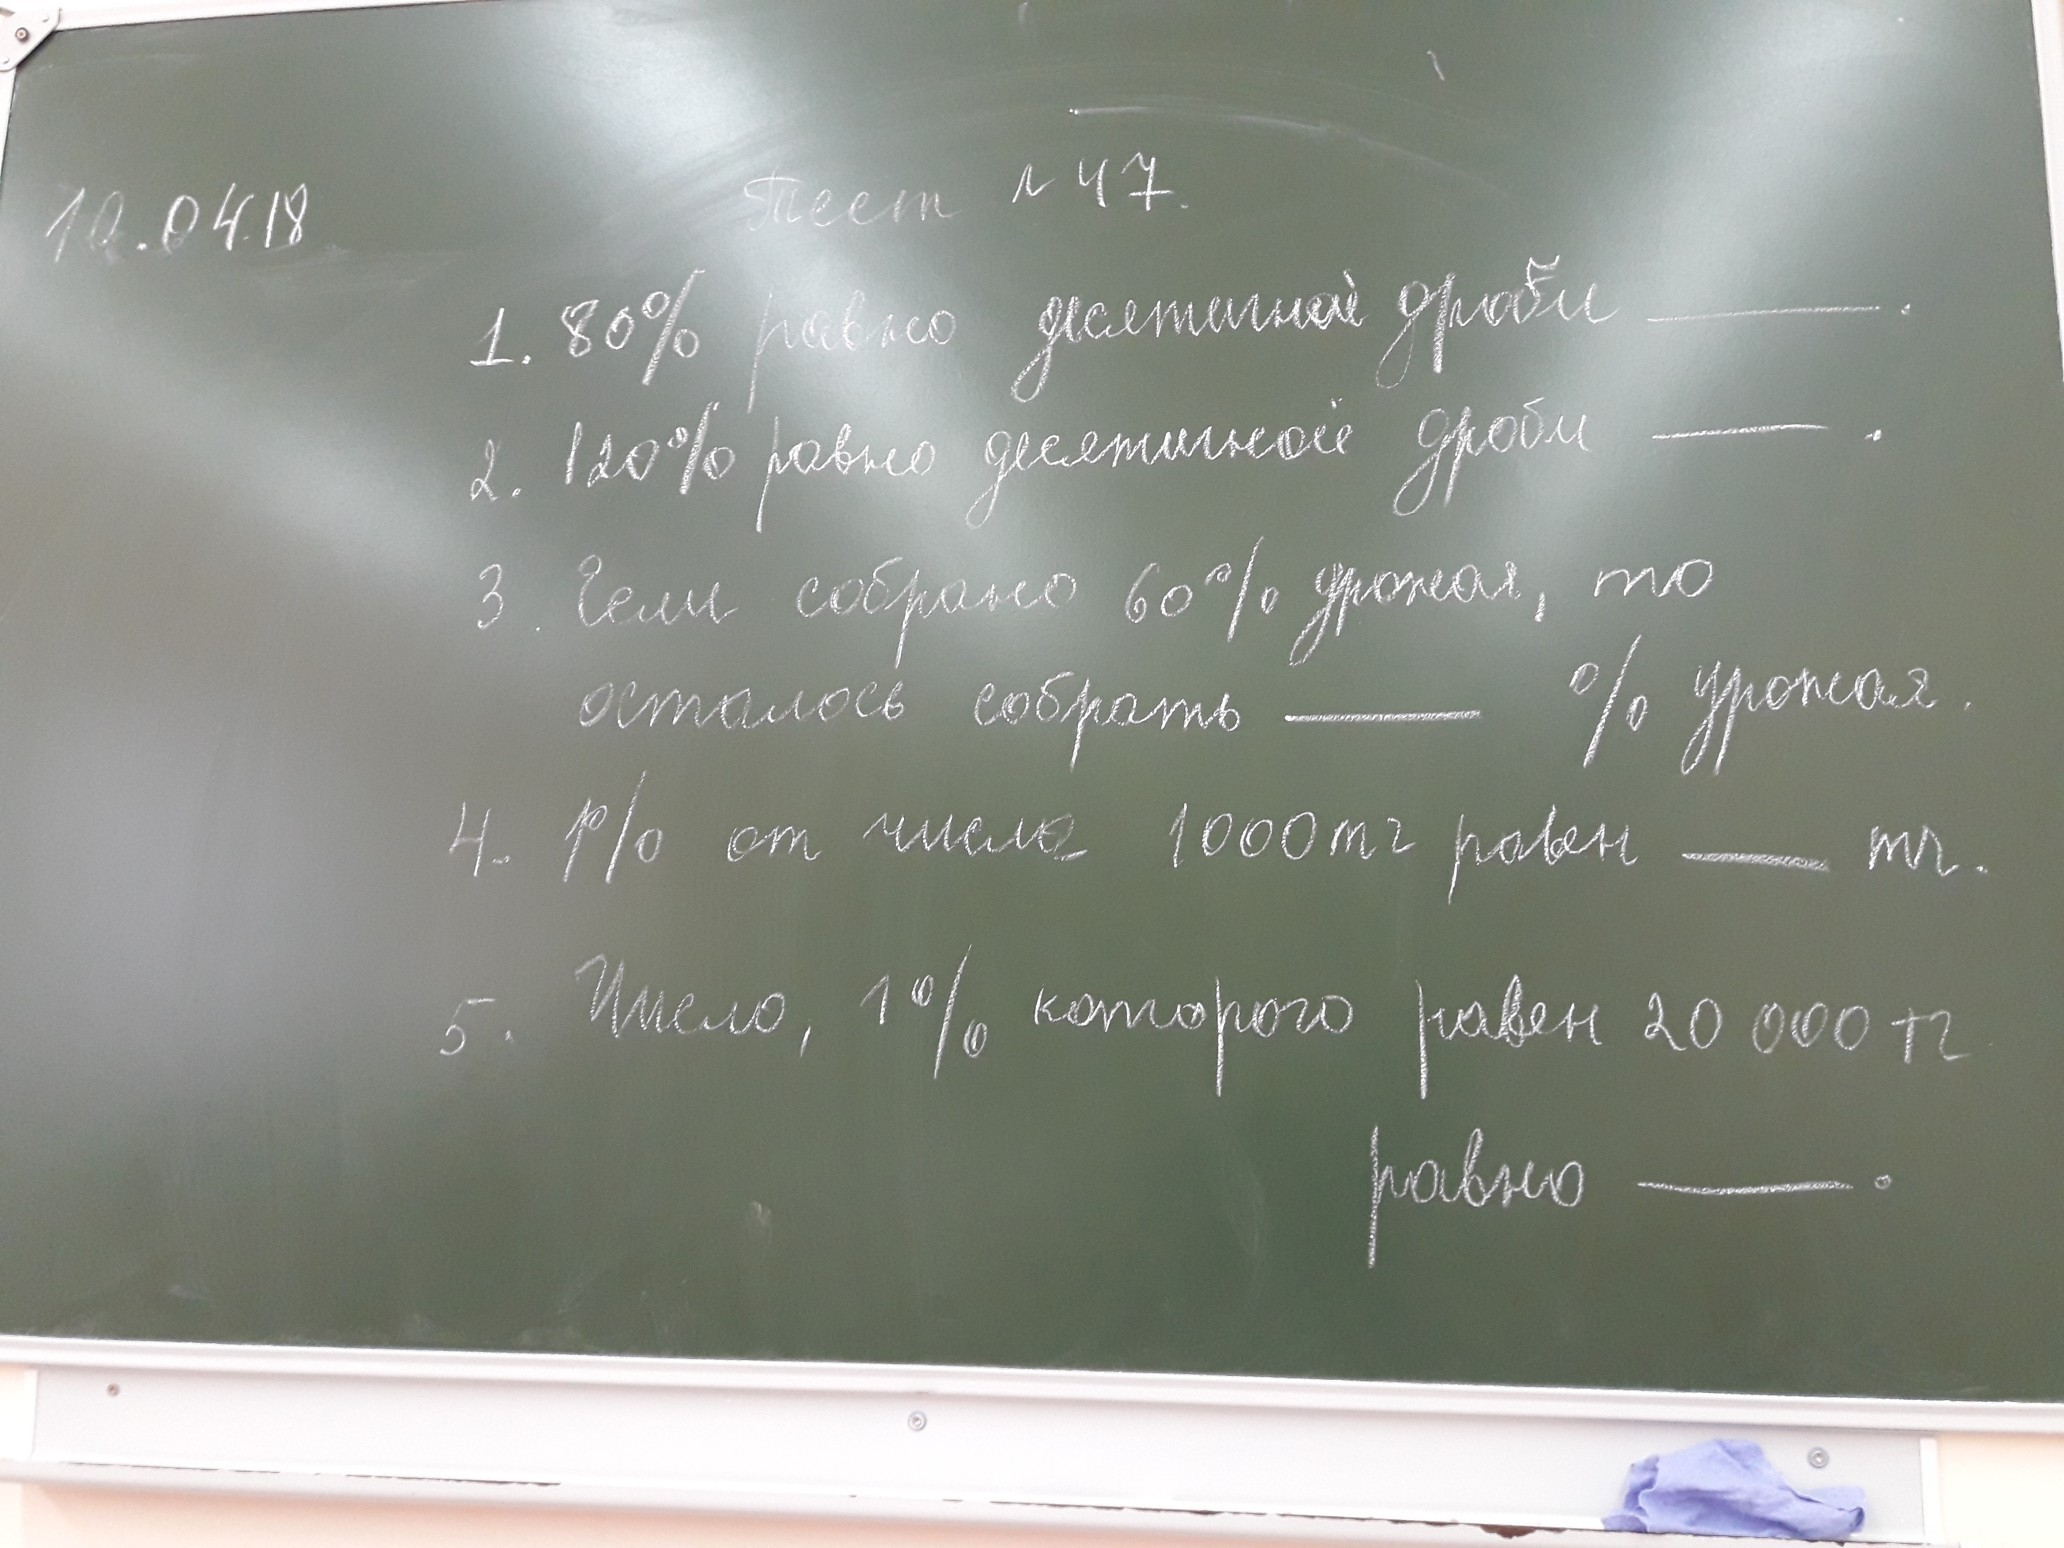 10.04.18 Тест № 47.
1. 80% равно десятичной дроби ______.
2. 120% равно десятичной дроби ______.
3. Если собрано 60% урожая, то
осталось собрать ______ % урожая.
4. 1% от числа 1000 тг равен ______ тг.
5. Число, 1% которого равен 20 000 тг
равно ______.